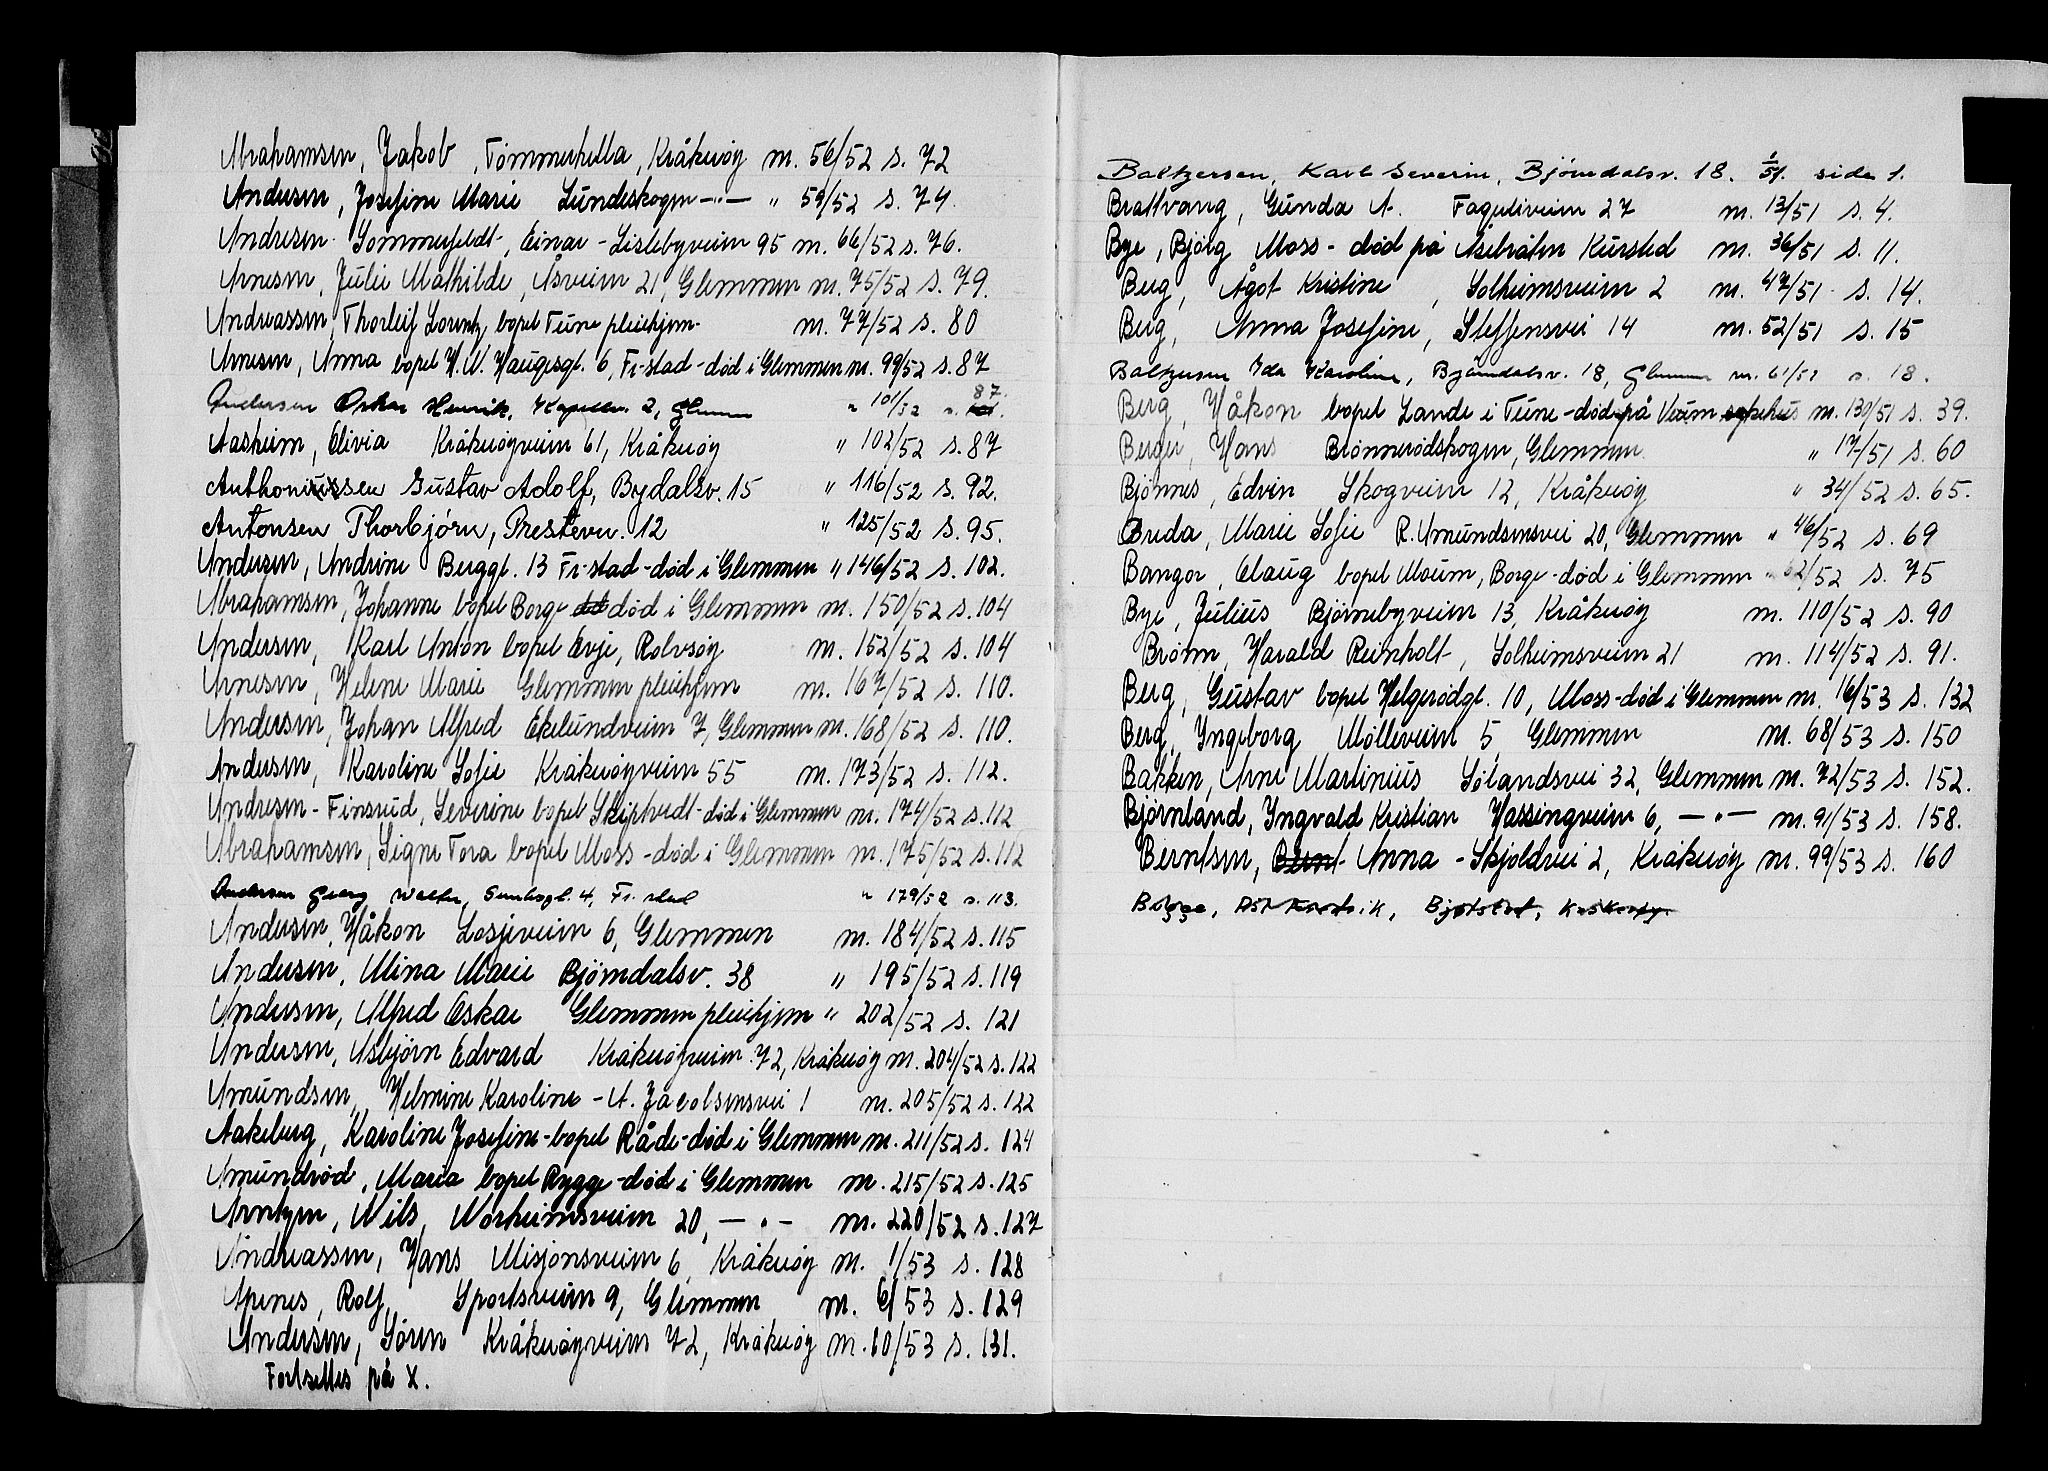 Abrahamsen, Jakob, Tømmerhella, Kråkerøy m. 56/52 s. 72
Andersen, Josefine Marie Lundeskogen —"— " 59/52 s. 74.
Andresen Sommerfeldt, Einar - Lislebyveien 95 m. 66/52 s. 76.
Arnesen, Julie Mathilde, Åsveien 21, Glemmen m. 75/52 s. 79.
Andreassen, Thorleif Lorentz bopel Tune pleiehjem. m. 77/52 s. 80
Arnesen, Anna bopel H. N. Haugesgt. 6, Fr-stad - død i Glemmen m. 99/52 s. 87
Andersen Oskar Henrik, Kapellv. 2, Glemmen " 101/52 s. 87.
Aasheim, Olivia Kråkerøyveien 61, Kråkerøy " 102/52 s. 87
Anthonissen Gustav Adolf, Bydalsv. 15 " 116/52 s. 92.
Antonsen Thorbjörn, Prestevn. 12 " 125/52 s. 95.
Andersen, Andrine Berggt. 13 Fr-stad - død i Glemmen " 146/52 s. 102.
Abrahamsen, Johanne bopel Borge død i Glemmen m. 150/52 s. 104
Andersen, Karl Anton bopel Evje, Rolvsøy m. 152/52 s. 104
Arnesen, Helene Marie Glemmen pleiehjem m. 167/52 s. 110.
Andersen, Johan Alfred Ekelundveien 7, Glemmen m. 168/52 s. 110.
Andersen, Karoline Sofie Kråkerøyveien 55 m. 173/52 s. 112.
Andresen - Finsrud, Severine bopel Skiptvedt - død i Glemmen m. 174/52 s. 112
Abrahamsen, Signe Tora bopel Moss - død i Glemmen m. 175/52 s. 112
Andersen Georg Walter, 4, Fr. stad " 179/52 s. 113.
Andersen, Håkon Losjeveien 6, Glemmen m. 184/52 s. 115
Andersen, Mina Marie Bjørndalsv. 38 " 195/52 s. 119
Andersen, Alfred Oskar Glemmen pleiehjem " 202/52 s. 121
Andersen, Asbjørn Edvard Kråkerøyveien 72, Kråkerøy m. 204/52 s. 122
Amundsen, Helmine Karoline - A. Jacobsensvei 1 m. 205/52 s. 122
Aakeberg, Karoline Josefine - bopel Råde - død i Glemmen m. 211/52 s. 124
Amundrød, Maria bopel Rygge - død i Glemmen m. 215/52 s. 125
Arntzen, Nils, Norheimsveien 20, — " — m. 220/52 s. 127
Andreassen, Hans Misjonsveien 6, Kråkerøy m. 1/53 s. 128
Apenes, Rolf, Sportsveien 9, Glemmen m. 6/53 s. 129
Andersen, Sören Kråkerøyveien 72, Kråkerøy m. 10/53 s. 131.
Fortsettes på X.
Baltzersen, Karl Severin, Bjørndalsv. 18. 1/51. side 1.
Brattvang, Gunda A. Fagerliveien 27 m. 13/51 s. 4.
Bye, Bjørg Moss - død på Åsebråten Kursted m. 36/51 s. 11.
Berg, Ågot Kristine, Solheimsveien 2 m. 47/51 s. 14.
Berg, Anna Josefine, Steffensvei 14 m. 52/51 s. 15
Baltzersen Ida Karoline, Bjørndalsv. 18, Glemmen m. 61/51 s. 18.
Berg, Håkon bopel Lande i Tune - død på Veum sykehus m. 130/51 s. 39.
Berger, Hans Brønnerødskogen, Glemmen. " 17/51 s. 60
Bjønnes, Edvin Skogveien 12, Kråkerøy " 34/52 s. 65.
Breda, Marie Sofie R. Amundsensvei 20, Glemmen " 46/52 s. 69
Bangor, Olaug bopel Moum, Borge - død i Glemmen " 62/52 s. 75
Bye, Julius Bjørnebyveien 13, Kråkerøy m. 110/52 s. 90
Brønn, Harald Reinholt, Solheimsveien 21 m. 114/52 s. 91.
Berg, Gustav bopel Helgerødgt. 10, Moss - død i Glemmen m. 16/53 s. 132
Berg, Ingeborg Mølleveien 5, Glemmen m. 68/53 s. 150
Bakken, Arne Martinius Sølandsvei 32, Glemmen m. 72/53 s. 152.
Bjørnland, Ingvald Kristian Hassingveien 6, — " — m. 91/53 s. 158.
Berntsen, Bernt Anna - Skjoldvei 2, Kråkerøy m. 99/53 s. 160